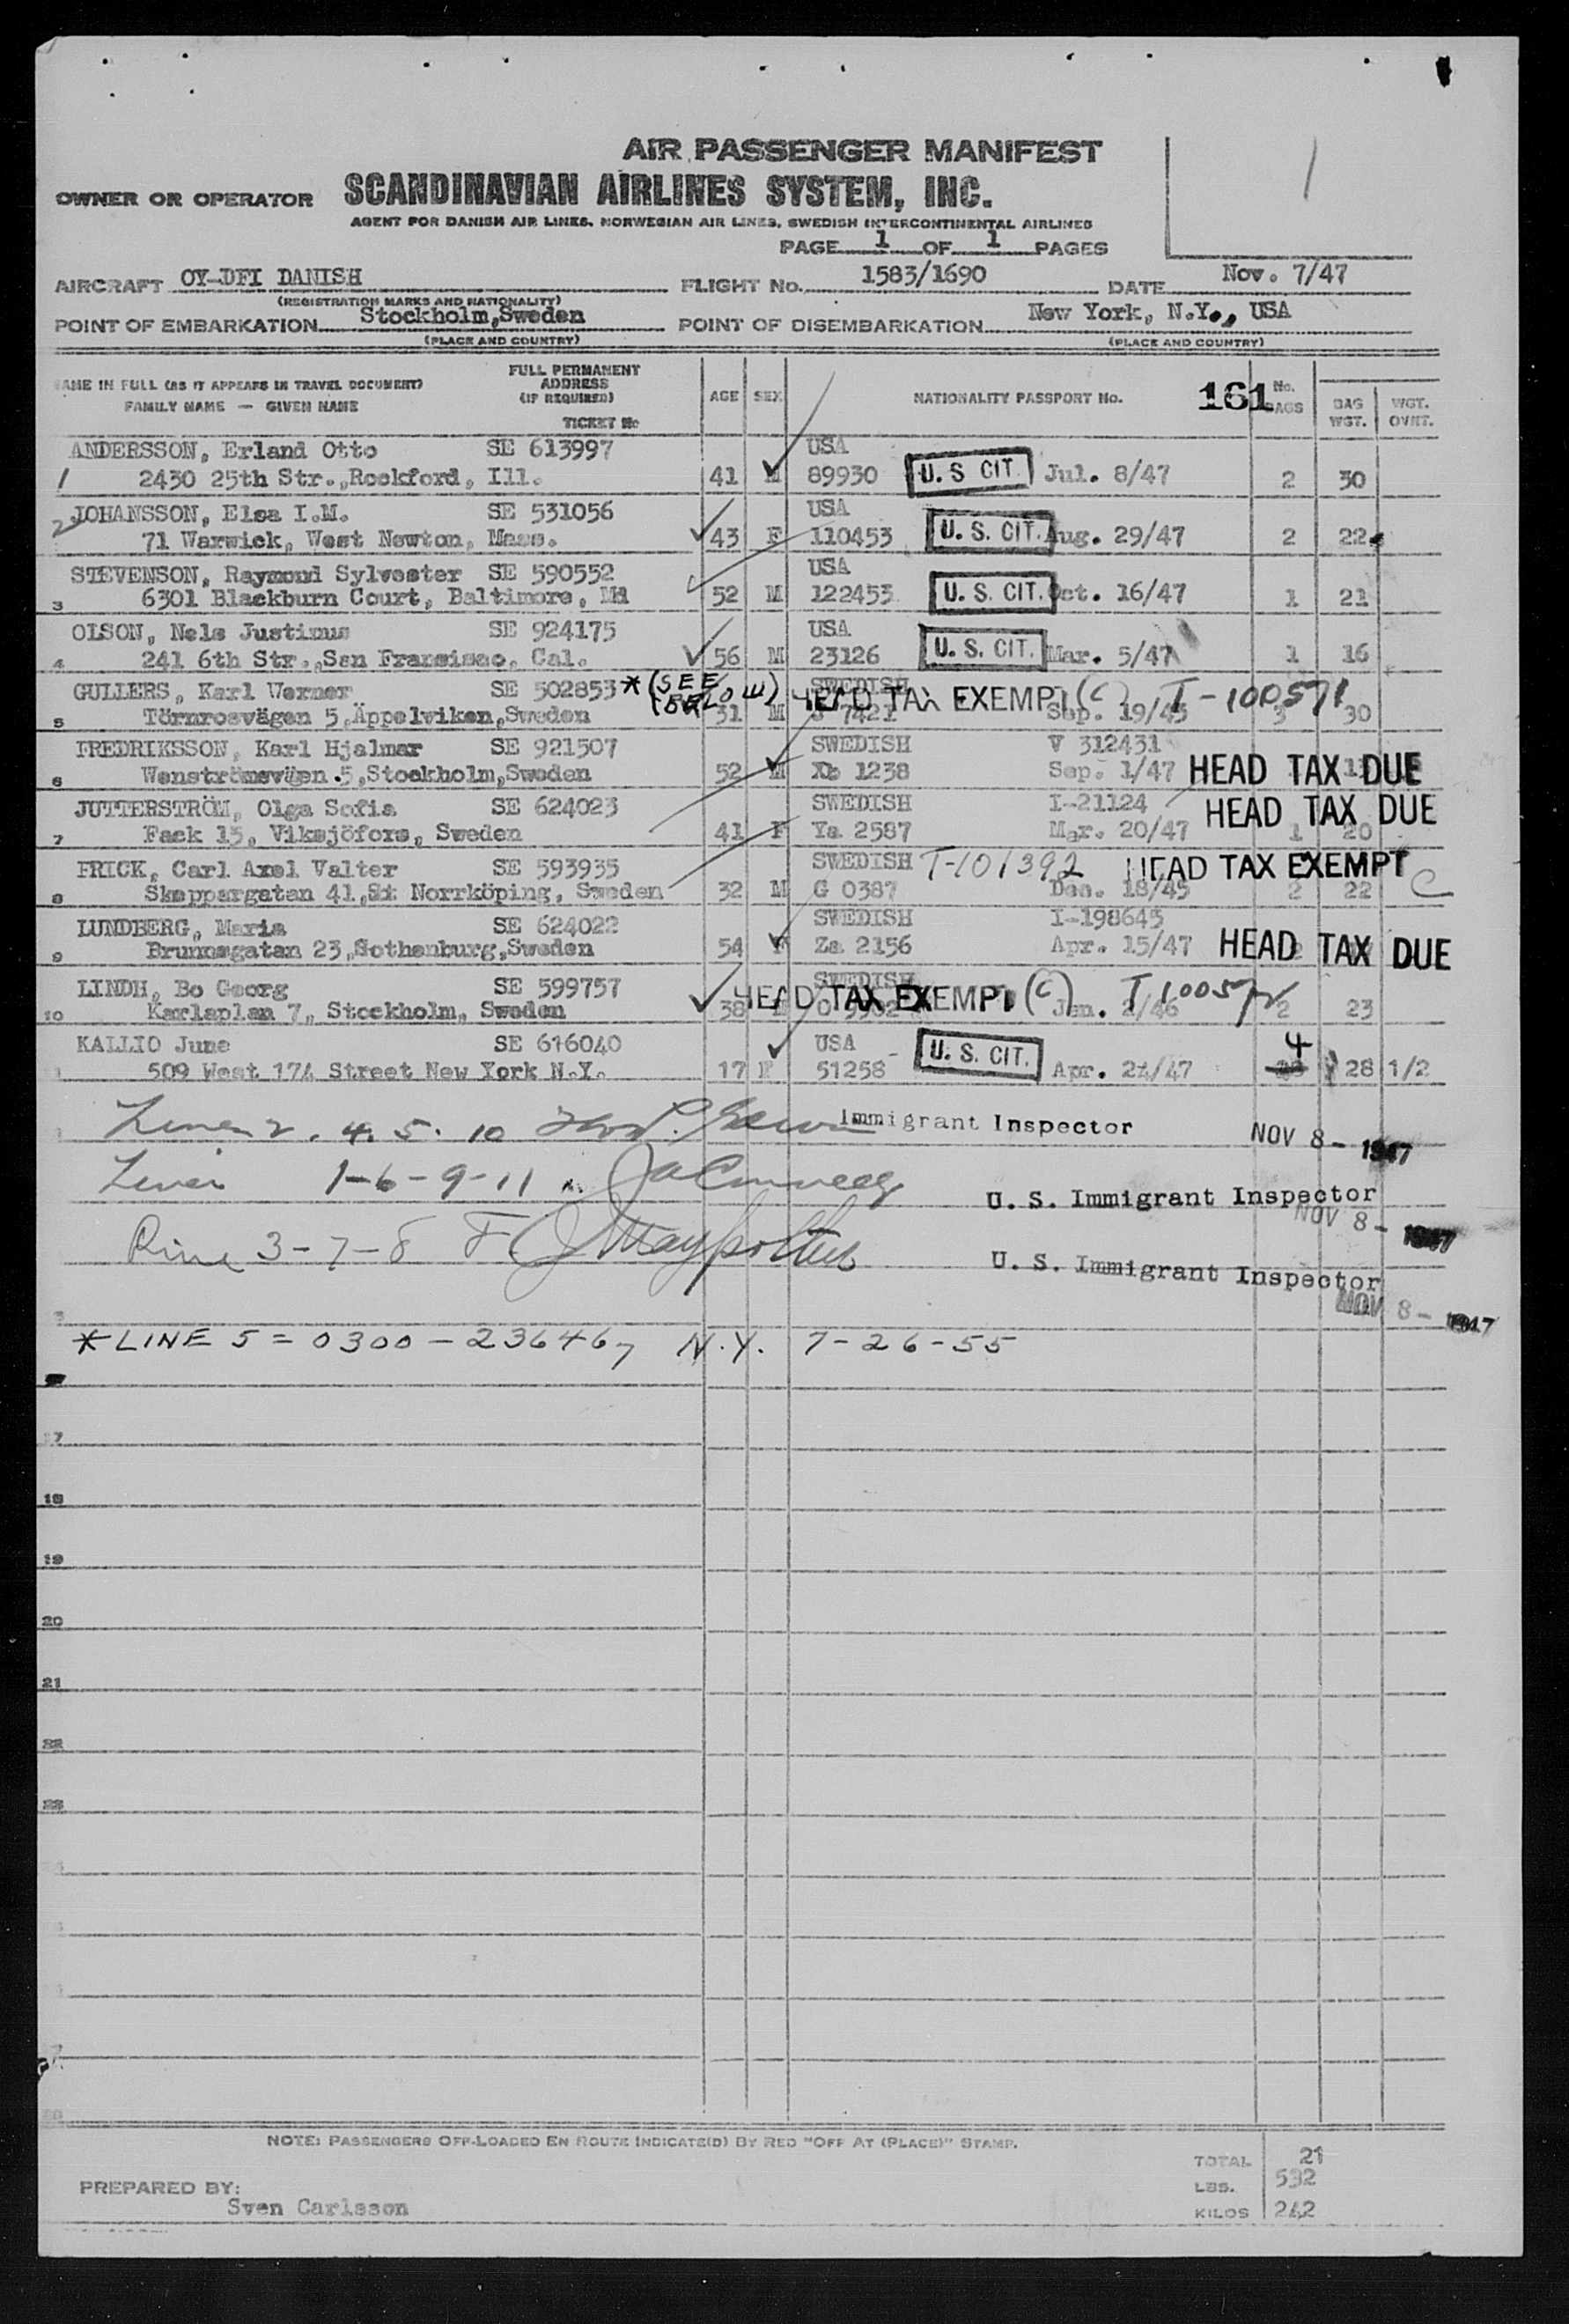 AIR PASSENGER MANIFEST
OWNER OR OPERATOR SCANDINAVIAN AIRLINES SYSTEM, INC.
AGENT FOR DANISH AIR LINES, NORWEGIAN AIR LINES, SWEDISH INTERCONTINENTAL AIRLINES
PAGE 1 OF 1 PAGES
AIRCRAFT OY-DFI DANISH FLIGHT No. 1583/1690 DATE Nov. 7/47
(REGISTRATION MARKS AND NATIONALITY)
POINT OF EMBARKATION Stockholm, Sweden POINT OF DISEMBARKATION New York, N.Y., USA
(PLACE AND COUNTRY) (PLACE AND COUNTRY)
NAME IN FULL (AS IT APPEARS IN TRAVEL DOCUMENT) FULL PERMANENT ADDRESS (IF REQUIRED) AGE SEX NATIONALITY PASSPORT No. 161 No. BAGS BAG WGT. WGT. OVHT.
FAMILY NAME — GIVEN NAME TICKET No
ANDERSSON, Erland Otto SE 613997 USA
1 2430 25th Str., Rockford, Ill. 41 M 89930 U. S CIT. Jul. 8/47 2 30
2 JOHANSSON, Elsa I.M. SE 531056 USA
71 Warwick, West Newton, Mass. 43 F 110453 U. S. CIT. Aug. 29/47 2 22
STEVENSON, Raymond Sylvester SE 590552 USA
3 6301 Blackburn Court, Baltimore, Md 52 M 122453 U. S. CIT. Oct. 16/47 1 21
OLSON, Nels Justinus SE 924175 USA
4 241 6th Str., San Francisco, Cal. 56 M 23126 U. S. CIT. Mar. 5/47 1 16
GULLERS, Karl Werner SE 502853 * (SEE BELOW) SWEDISH HEAD TAX EXEMPT (C) T-100571
5 Törnrosvägen 5, Äppelviken, Sweden 31 M 7421 Sep. 19/45 3 30
FREDRIKSSON, Karl Hjalmar SE 921507 SWEDISH V 312431
6 Wenströmsvägen 5, Stockholm, Sweden 52 M Xb 1238 Sep. 1/47 HEAD TAX DUE
JUTTERSTRÖM, Olga Sofia SE 624023 SWEDISH I-21124 HEAD TAX DUE
7 Fack 15, Viksjöfors, Sweden 41 F Ya 2587 Mar. 20/47 1 20
FRICK, Carl Axel Valter SE 593935 SWEDISH T-101392 HEAD TAX EXEMPT C
8 Skeppargatan 41, Norrköping, Sweden 32 M G 0387 Dec. 18/45 2 22
LUNDBERG, Maria SE 624022 SWEDISH I-198645
9 Brunnsgatan 23, Gothenburg, Sweden 54 F Za 2156 Apr. 15/47 HEAD TAX DUE
LINDH, Bo Georg SE 599757 SWEDISH HEAD TAX EXEMPT (C)
10 Karlaplan 7, Stockholm, Sweden 38 Jan. 2/46 2 23
KALLIO June SE 616040 USA U. S. CIT. 4
509 West 174 Street New York N.Y. 17 F 51258 Apr. 24/47 28 1/2
Lines 2. 4. 5. 10 Immigrant Inspector NOV 8 - 1947
Lines 1-6-9-11 U. S. Immigrant Inspector
NOV 8 - 1947
Line 3-7-8 U. S. Immigrant Inspector
NOV 8 - 1947
* LINE 5 = 0300-236467 N.Y. 7-26-55
17
18
19
20
21
22
23
NOTE: PASSENGERS OFF-LOADED EN ROUTE INDICATE(D) BY RED "OFF AT (PLACE)" STAMP.
TOTAL 21
PREPARED BY: LBS. 532
Sven Carlsson KILOS 242